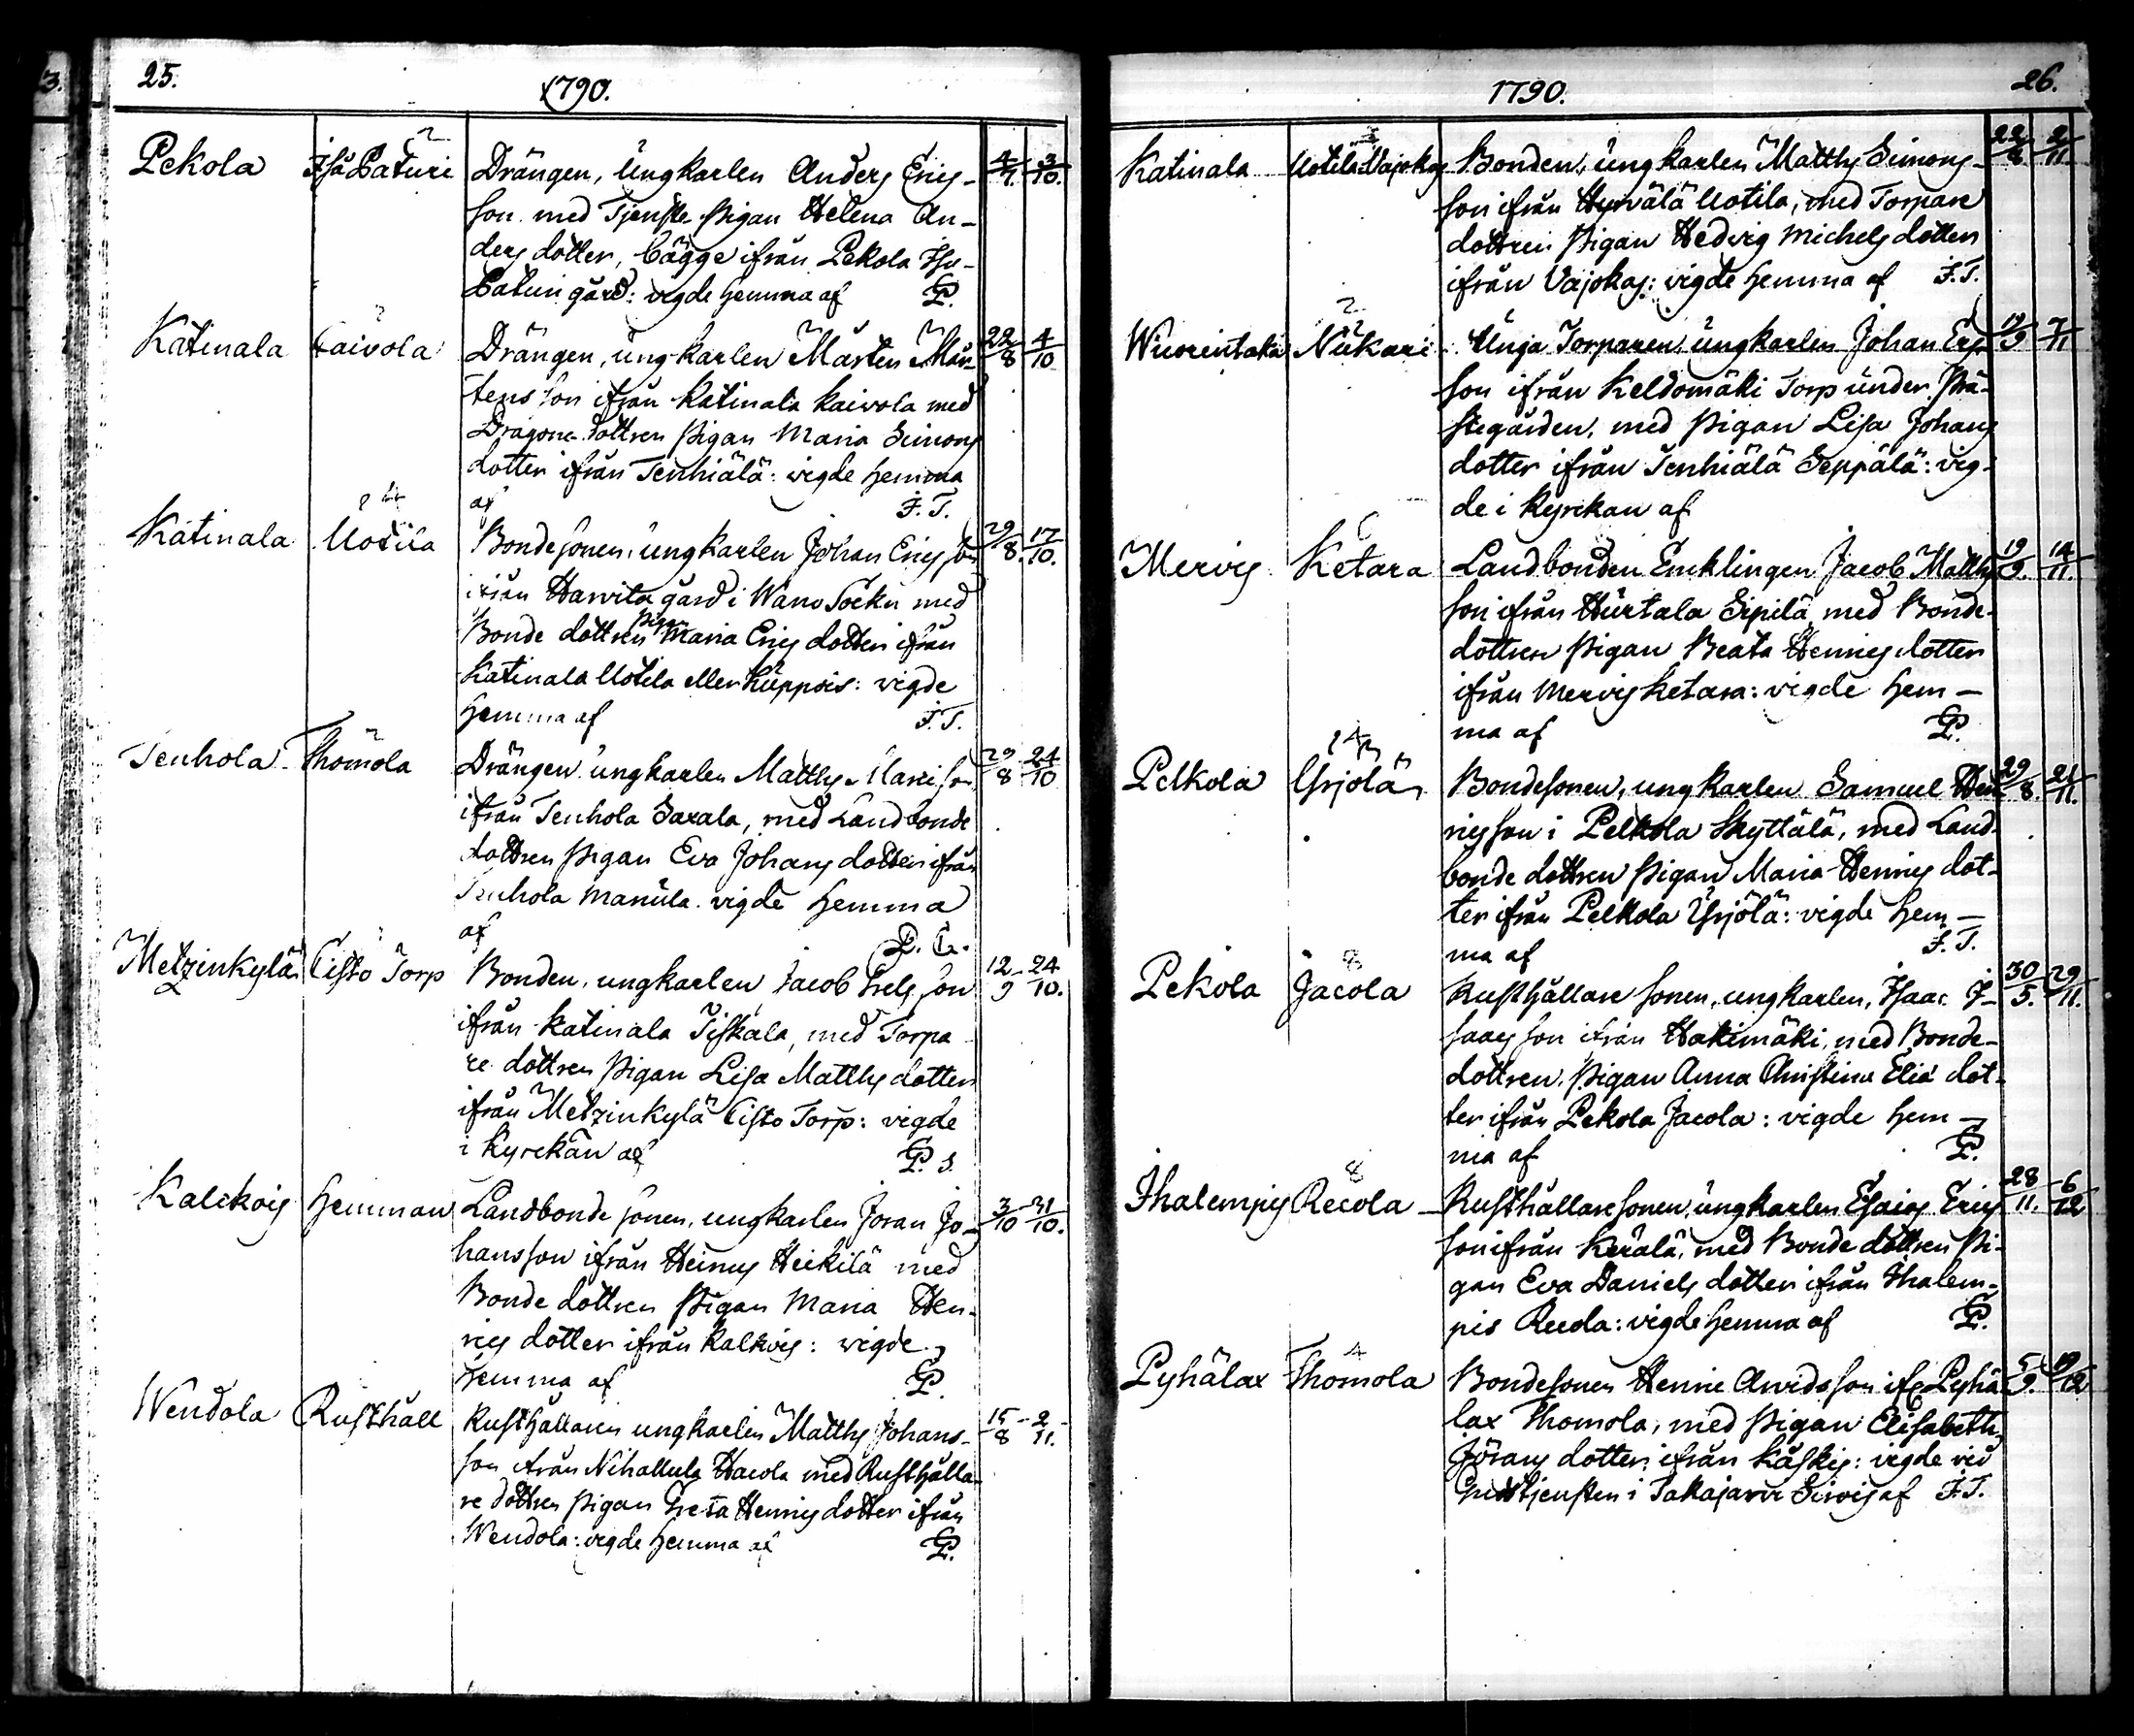 25.
1790.
Pekola Iso Paturi Drängen, ungkarlen Anders Erics- 4/7. 3/10.
son med Tjenste pigan Helena An-
ders dotter, bägge ifrån Pekola Iso-
Paturi gård: vigde hemma af P.
Katinala Caivola Drängen, ungkarlen Mårten Mår- 22/8 4/10
tens son ifrån Katinala Kaivola med
Dragone dottren pigan Maria Simons
dotter ifrån Tenhiälä: vigde hemma
af J. T.
Katinala Uotila Bondesonen, ungkarlen Johan Erics son 29/8. 17/10.
ifrån Harvila gård i Wano Sockn med
Bonde dottren pigan Maria Erics dotter ifrån
Katinala Uotila eller Kuppois: vigde
hemma af J. T.
Tenhola Thomola Drängen ungkarlen Matths Marci son 29/8 24/10
ifrån Tenhola Saxala, med Landbonde
dottren pigan Eva Johans dotter ifrån
Tenhola Manula. vigde hemma
af
Metzinkylä Cisto Torp Bonden, ungkarlen Jacob Grels son 12/9 24/10.
ifrån Katinala Tiskala, med Torpa
re dottren pigan Lisa Matths dotter
ifrån Metzinkylä Cisto Torp: vigde
i Kyrckan af P. S.
Kalckois Hemman Landbonde sonen, ungkarlen Joran Jo- 3/10 31/10.
hansson ifrån Heinus Heikilä med
Bonde dottren pigan Maria Hen-
rics dotter ifrån Kalkois: vigde
hemma af P.
Wendola Rusthåll Rusthållaren ungkarlen Matths Johans- 15/8 2/11.
son ifrån Nihattula Hacola med Rusthålla-
re dottren pigan Greta Henrics dotter ifrån
Wendola: vigde hemma af P.
1790.
26.
Katinala Uotila Vajokas Bonden, ungkarlen Matths Simons- 22/8 2/11
son ifrån Hyrvälä Uotila, med Torpare
dottren pigan Hedvig Michels dotter
ifrån Vajokas: vigde hemma af J. T.
Wuorentaka Nukari Unga Torparen, ungkarlen Johan Ers 19/9 7/11
son ifrån Keldomäki Torp under Prä-
stegården, med pigan Lisa Johans
dotter ifrån Tenhiälä Seppälä: vig-
de i Kyrckan af
Mervis Ketara Landbonden Enklingen Jacob Matths 19/9. 14/11.
son ifrån Hurtala Sipilä, med Bonde-
dottren pigan Beata Henrics dotter
ifrån Mervis Ketara: vigde hem-
ma af P.
Pelkola Yrjölä Bondesonen, ungkarlen Samuel Hen 29/8. 21/11.
rics son i Pelkola Skyttälä, med Land-
bonde dottren pigan Maria Henrics dot-
ter ifrån Pelkola Yrjölä: vigde hem-
ma af J. T.
Pekola Jacola Rusthållare sonen, ungkarlen, Isaac I- 30/5. 29/11.
saacs son ifrån Hakimäki, med Bonde-
dottren, pigan Anna Christina Eliæ dot-
ter ifrån Pekola Jacola: vigde hem-
ma af P.
Ihalempis Recola Rusthållare sonen, ungkarlen Esaias Erics 28/11. 6/12
son ifrån Kerälä, med Bonde dottren Pi-
gan Eva Daniels dotter ifrån Ihalem-
pis Recola: vigde hemma af P.
Pyhälax Thomola Bondesonen Henric Arvids son ifr. Pyhä 5/9. 19/12
lax Thomola, med pigan Elisabeth
Jörans dotter ifrån Kåskis: vigde vid
Gudstjensten i Takajärvi Sirois af J. T.